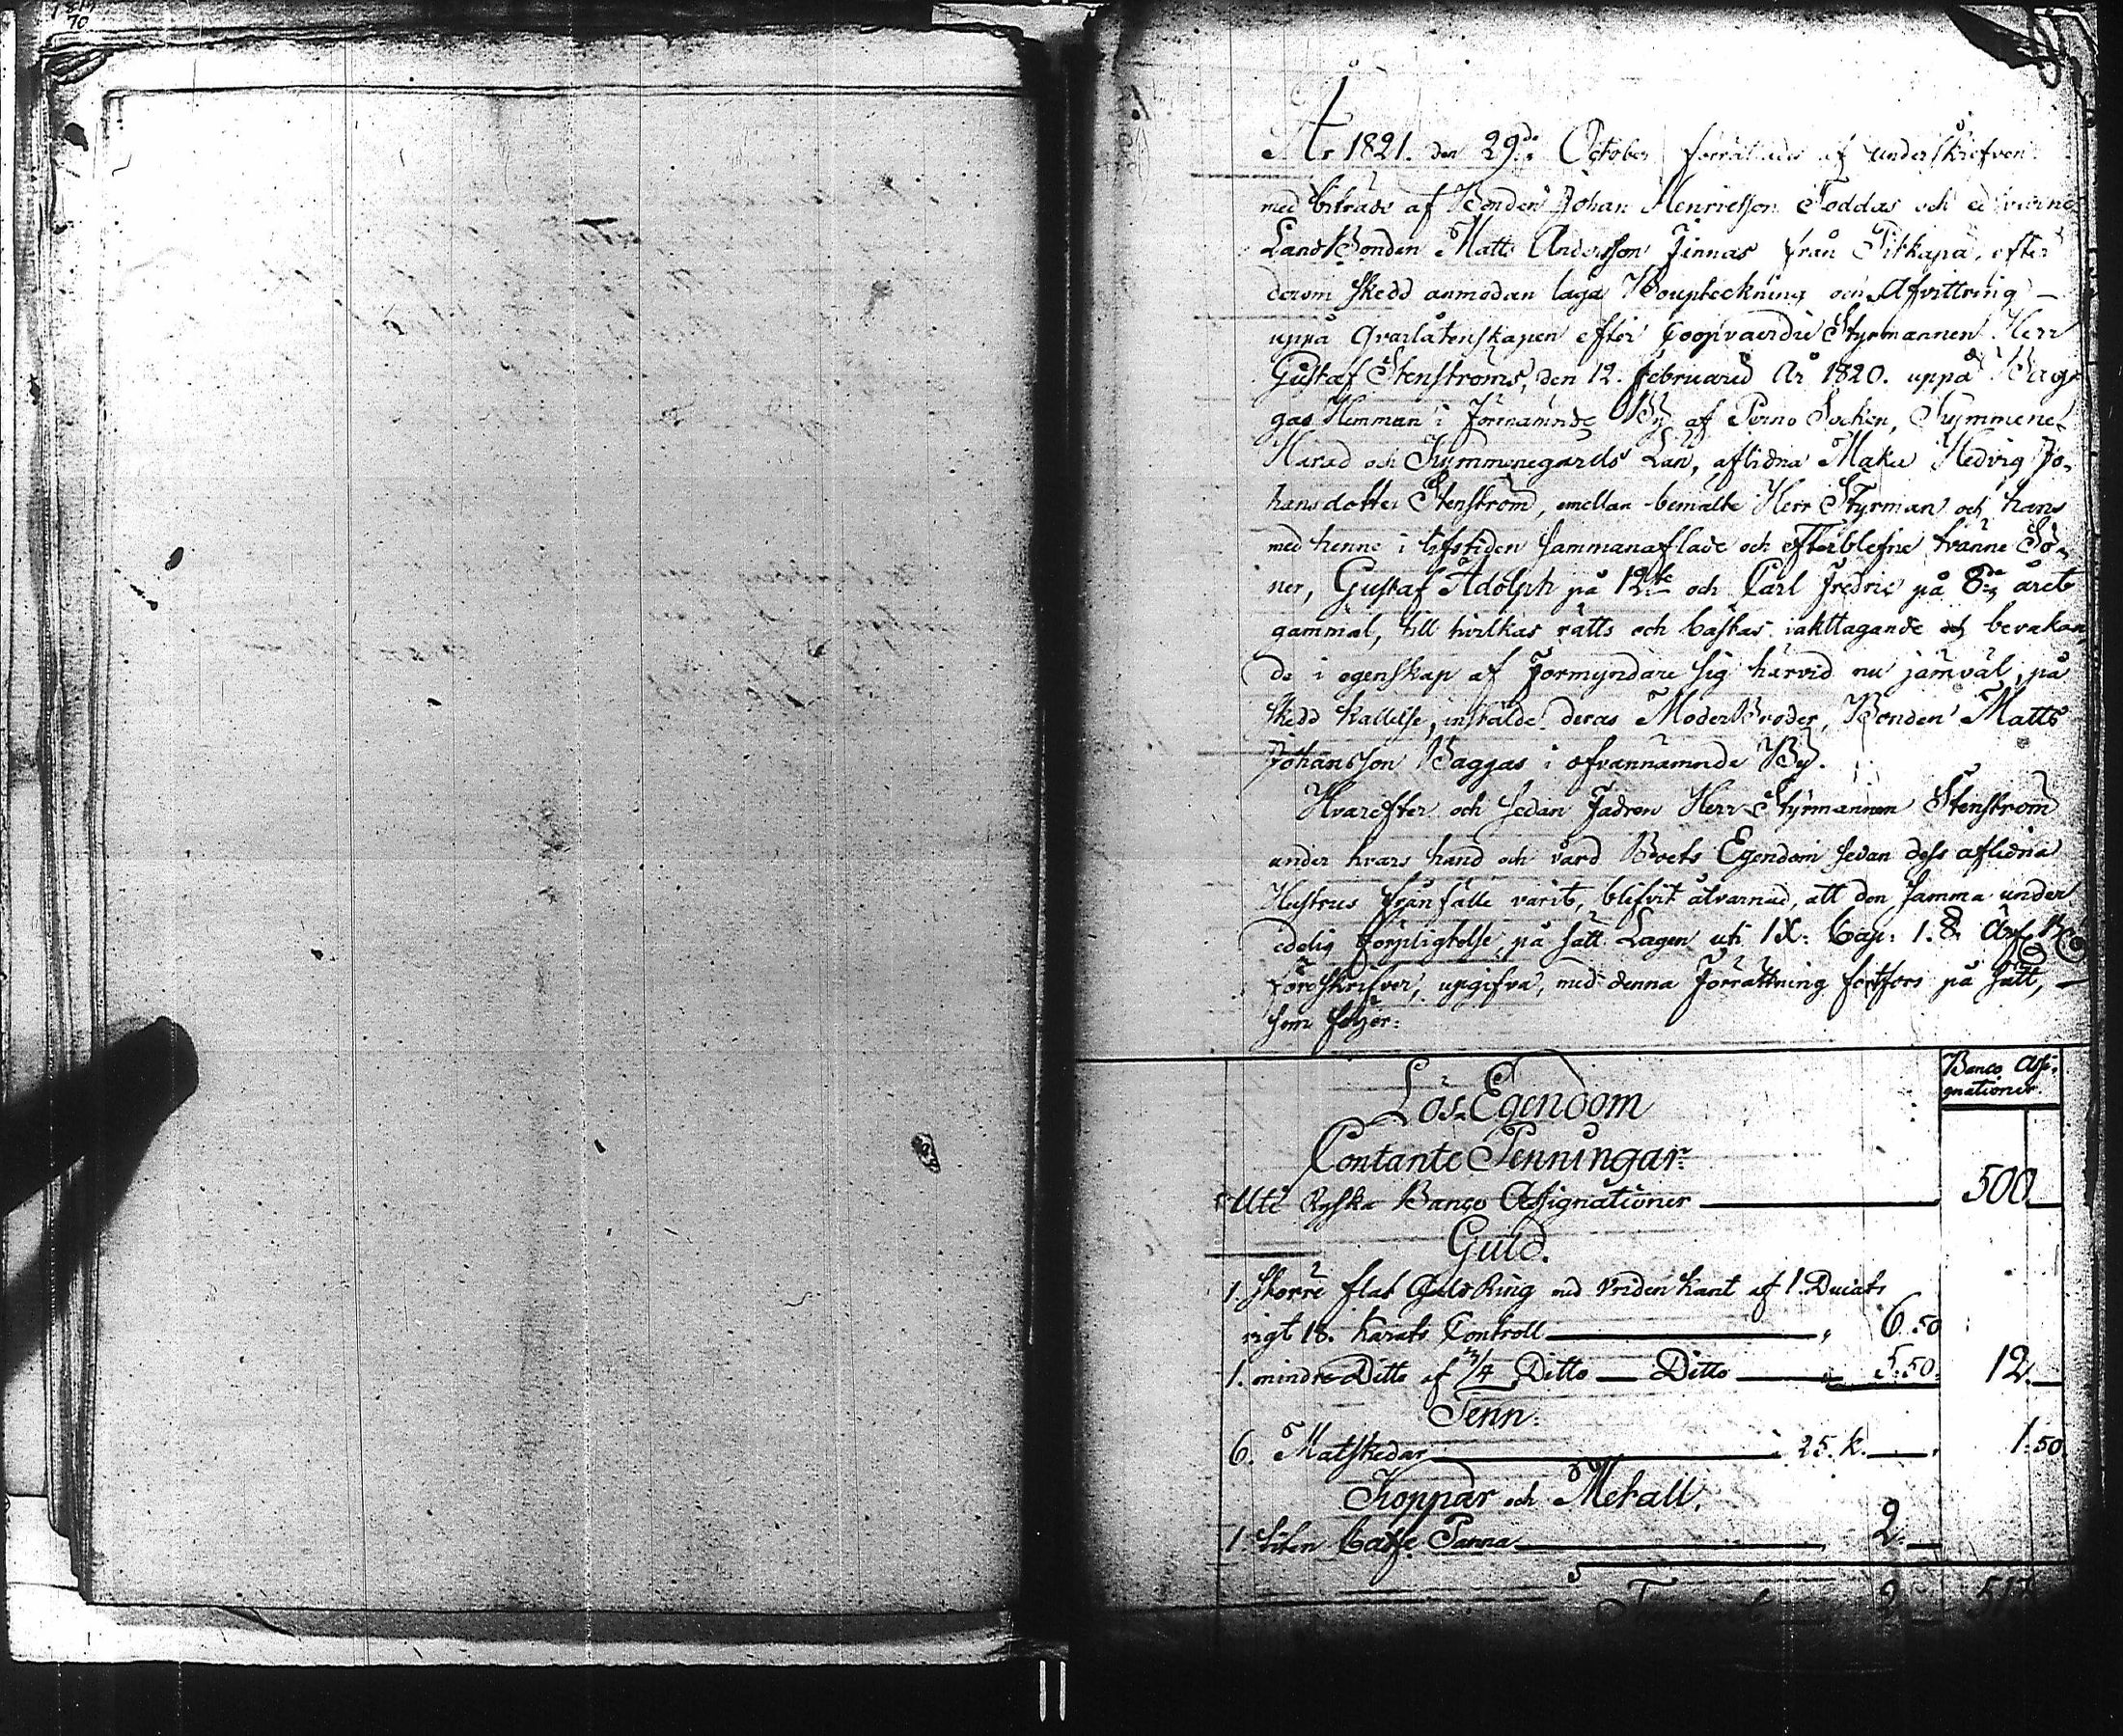 År 1821. den 29de October förrättades af underskrefven
med biträde af Bonden Johan Henricsson Toddas och
LandtBonden Matts Andersson Finnas från Pitkapä, efter
derom skedd anmodan laga Bouptekning och Afvittring
uppå qvarlåtenskapen efter Coopvaerdie Styrmannen Herr
Gustaf Stenströms, den 12. Februarii År 1820. uppå Bag-
gas Hemman i förenämnde By af Perno Socken, Kymmene
Härad och Kymmenegårds Län, aflidna Maka Hedvig Jo-
hansdotter Stenström, emellan bemälte Herr Styrman och hans
med henne i lifstiden sammanaflade och efterblefne tvänne Sö-
ner, Gustaf Adolph på 12te och Carl Fredric på 8de året
gammal, till hvilkas rätts och bästas iakttagande och bevakan-
de i egenskap af Förmyndare sig härvid nu jämväl, på
skedd kallelse, instälde deras ModerBroder, Bonden Matts
Johansson Baggas i ofvannämnde By.
Hvarefter och sedan Fadren Herr Styrmannen Stenström
under hvars hand och vård Boets Egendom sedan dess aflidna
Hustrus frånfälle varit, blifvit åtvarnad, att den samma under
edelig förpligtelse, på sätt Lagen uti IX. Cap: 1. § Ärf. B.
föreskrifver, upgifva, med denna Förrättning fortfors på sätt,
som följer:
Banco Assi-
gnationer.
Lös-Egendom
Contante Penningar
Uti Ryska Banco Assignationer 500
Guld.
1. större flat Guld Ring med vriden kant af 1. Ducats
vigt 18. Karats Controll 6.50
1. mindre Ditto af 3/4 Ditto Ditto 5.50. 12.
Tenn.
6. Matskedar 25. k. 1.50.
Koppar och Metall.
1. liten Caffe Panna 2.
2.